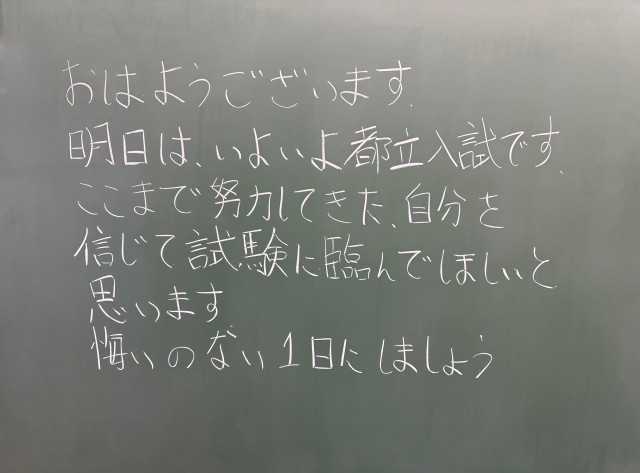 おはようございます.
明日は、いよいよ都立入試です.
ここまで努力してきた、自分を
信じて試験に臨んでほしいと
思います
悔いのない1日にしましょう